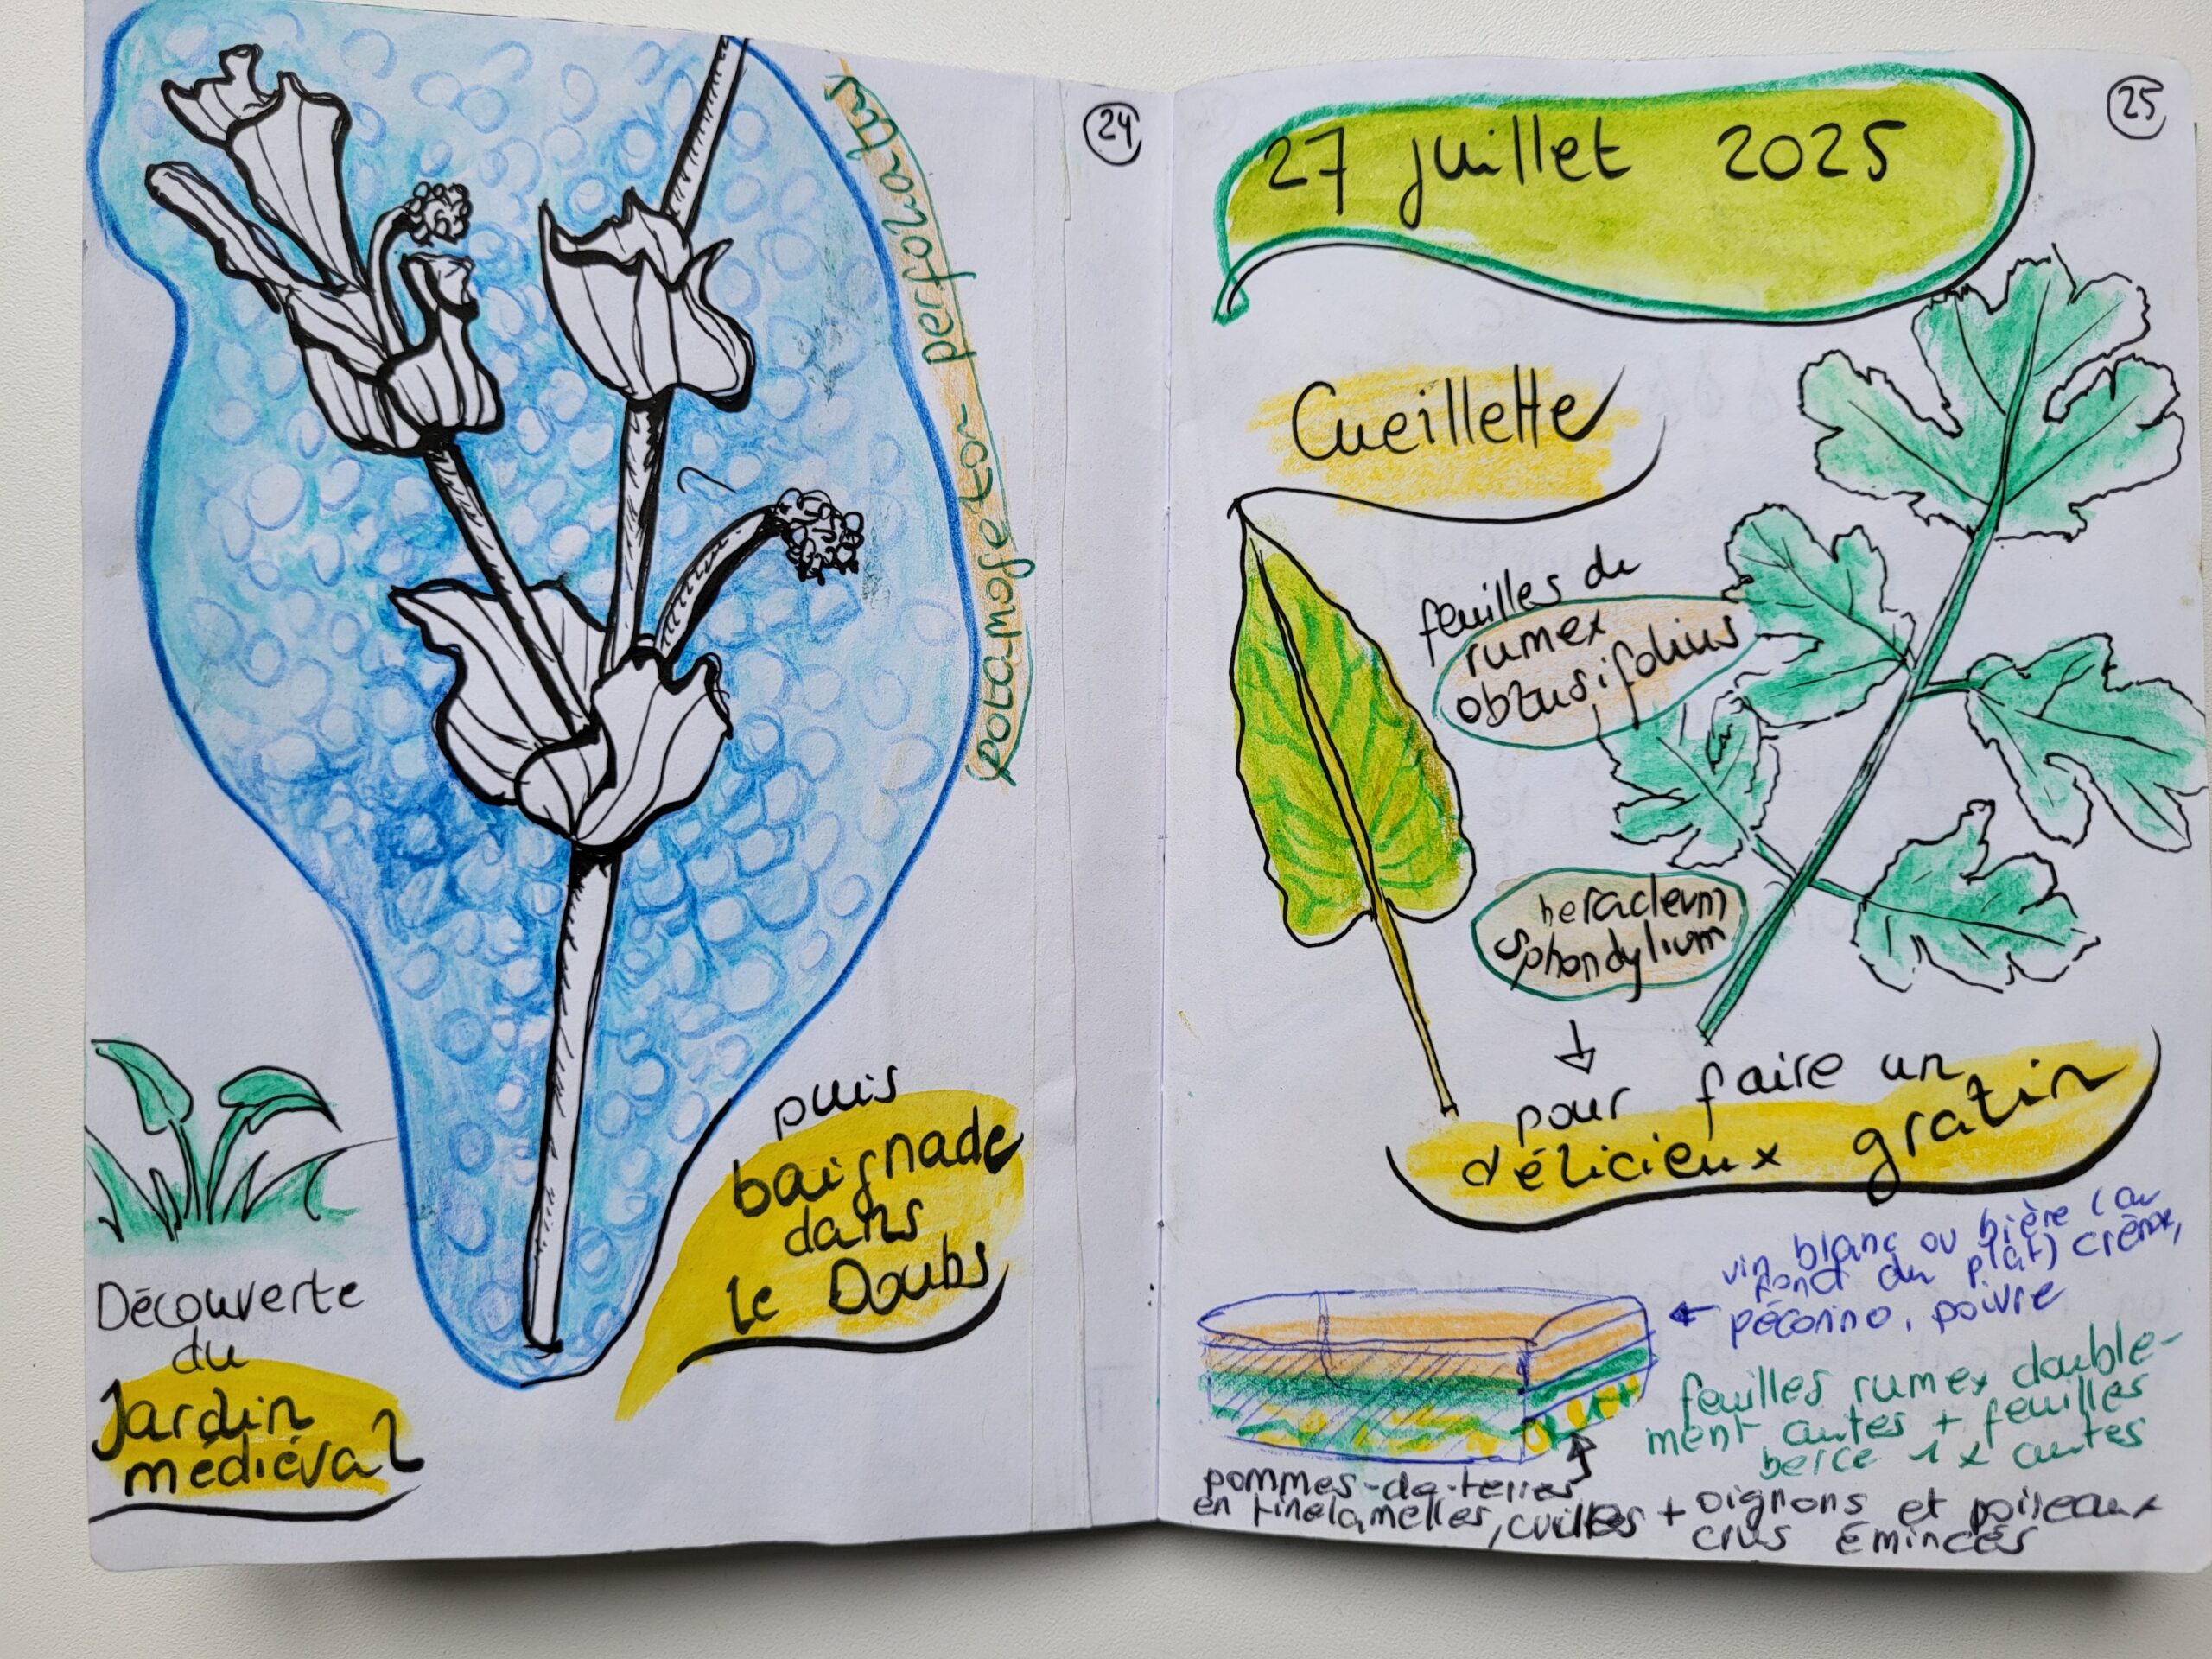 24
potamogeton perfoliatus
Découverte
du
Jardin
médiéval
puis
baignade
dans
le Doubs
25
27 juillet 2025
Cueillette
feuilles de
rumex
obtusifolius
heracleum
sphondylium
pour faire un
délicieux gratin
vin blanc ou bière (au
fond du plat) crème,
péconno, poivre
feuilles rumex double-
ment cuites + feuilles
berce 1 x cuites
pommes-de-terres
en fine lamelles, cuites + oignons et poireaux
crus émincés